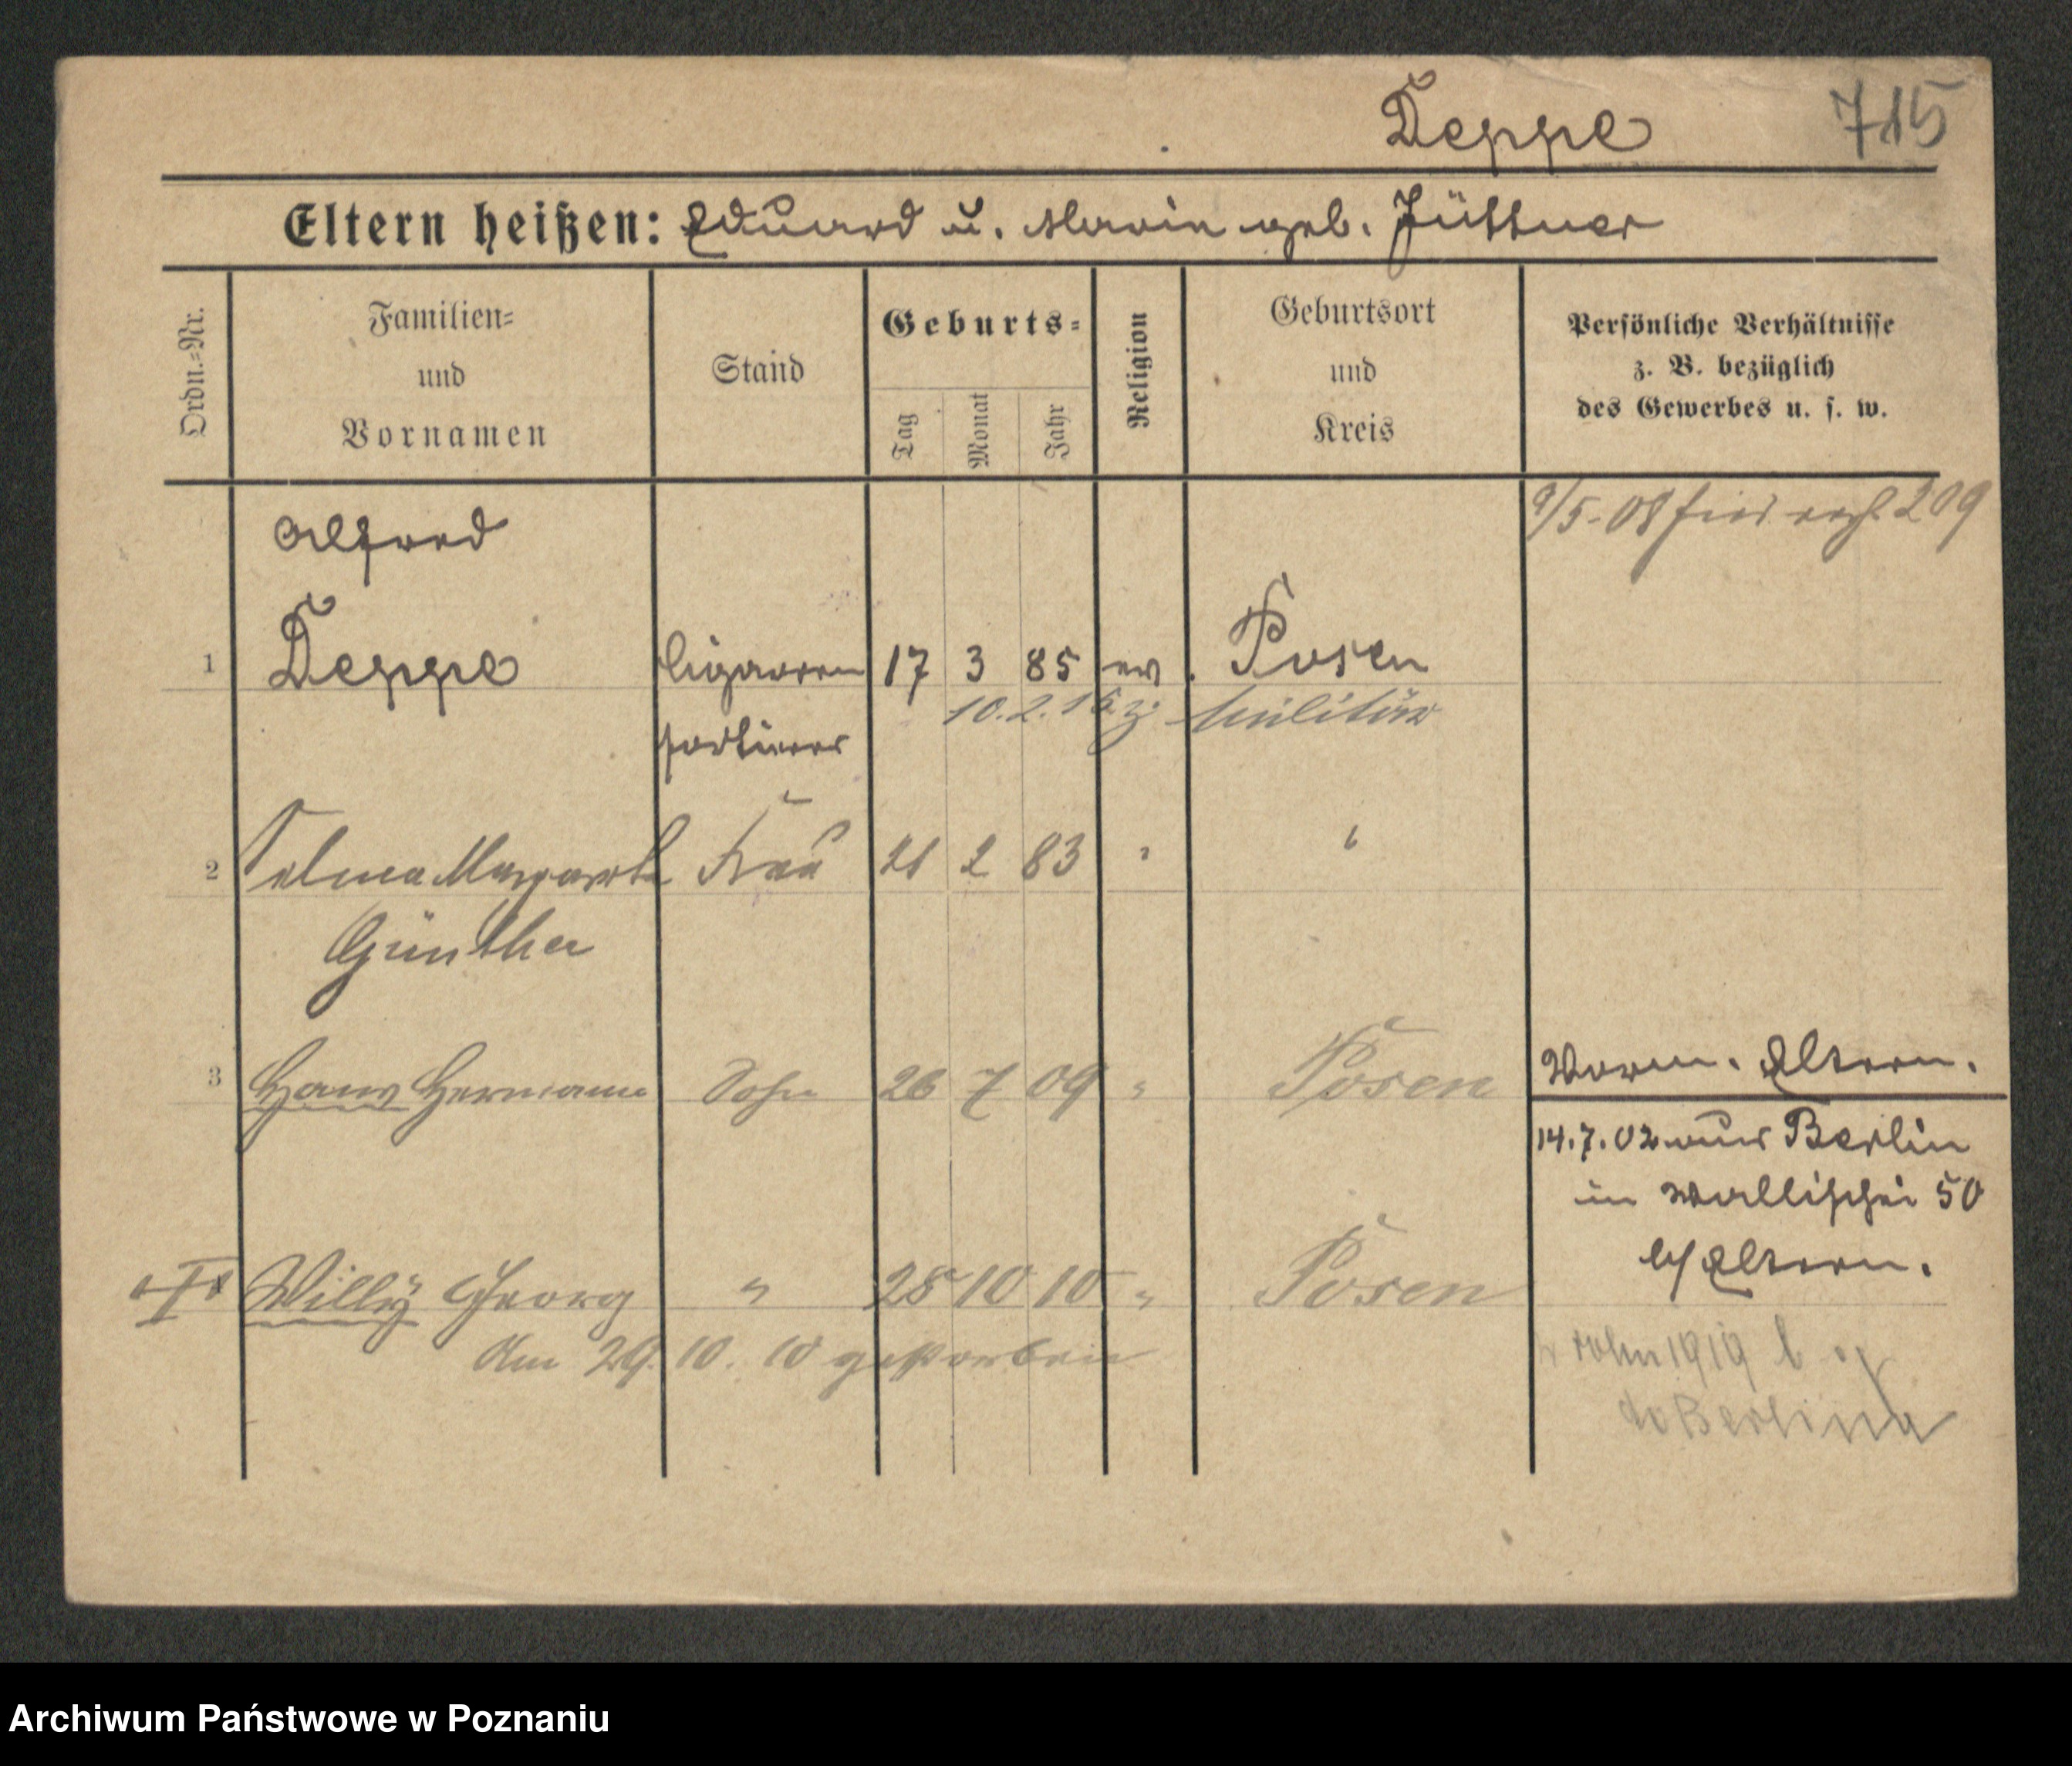 Deppe 715
Eltern heißen: Eduard u. Maria geb. Jüttner
Ordn.=Nr.
Familien=
und
Vornamen
Stand
Geburts=
Tag
Monat
Jahr
Religion
Geburtsort
und
Kreis
Persönliche Verhältnisse
z. B. bezüglich
des Gewerbes u. s. w.
9/5.08 209
Alfred
1 Deppe Cigarren 17 3 85 ev. Posen
10.2.15 z. Militär
sortierer
2 Selma Margarete Frau 21 2 83 " "
Günther
3 Hans Hermann Sohn 26 7 09 " Posen
Vorm. Eltern.
14.7.02 aus Berlin
in Wallischei 50
b/Eltern.
Willy Georg " 28 10 10 " Posen
Am 29. 10. 10 gestorben
1919
do Berlina
Archiwum Państwowe w Poznaniu